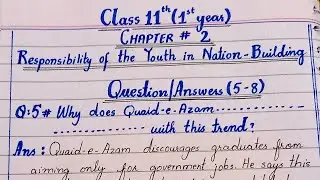 Class 11th (1st year)
CHAPTER # 2
Responsibility of the Youth in Nation-Building
Question/Answers (5-8)
Q:5# Why does Quaid-e-Azam ..............
.................... with this trend?
Ans: Quaid-e-Azam discourages graduates from
aiming only for government jobs. He says this